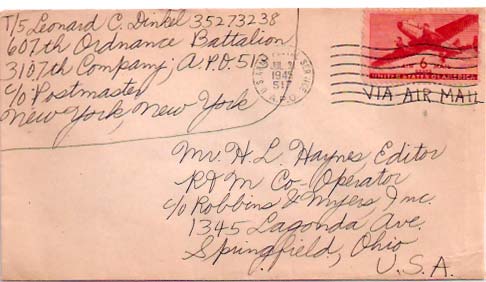 T/5 Leonard C. Dinkel 35273238
607th Ordnance Battalion
3107th Company; A.P.O. 513
c/o Postmaster
New York, New York
U.S. ARMY POSTAL SERVICE
JUL
1945
A.P.O.
AIR MAIL
6
UNITED STATES OF AMERICA
VIA AIR MAIL
Mr. H. L. Haynes, Editor
R & M Co-Operator
c/o Robbins & Myers, Inc.
1345 Lagonda Ave.
Springfield, Ohio
U.S.A.